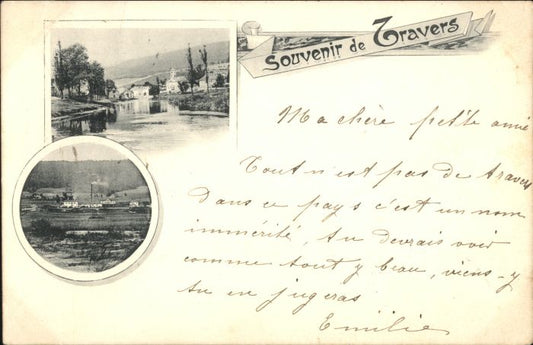 Souvenir de Travers
Ma chère petite amie
Tout n'est pas de travers
Dans ce pays c'est un nom
immérité, tu devrais voir
comme tout y beau, viens-y
tu en jugeras
Emilie